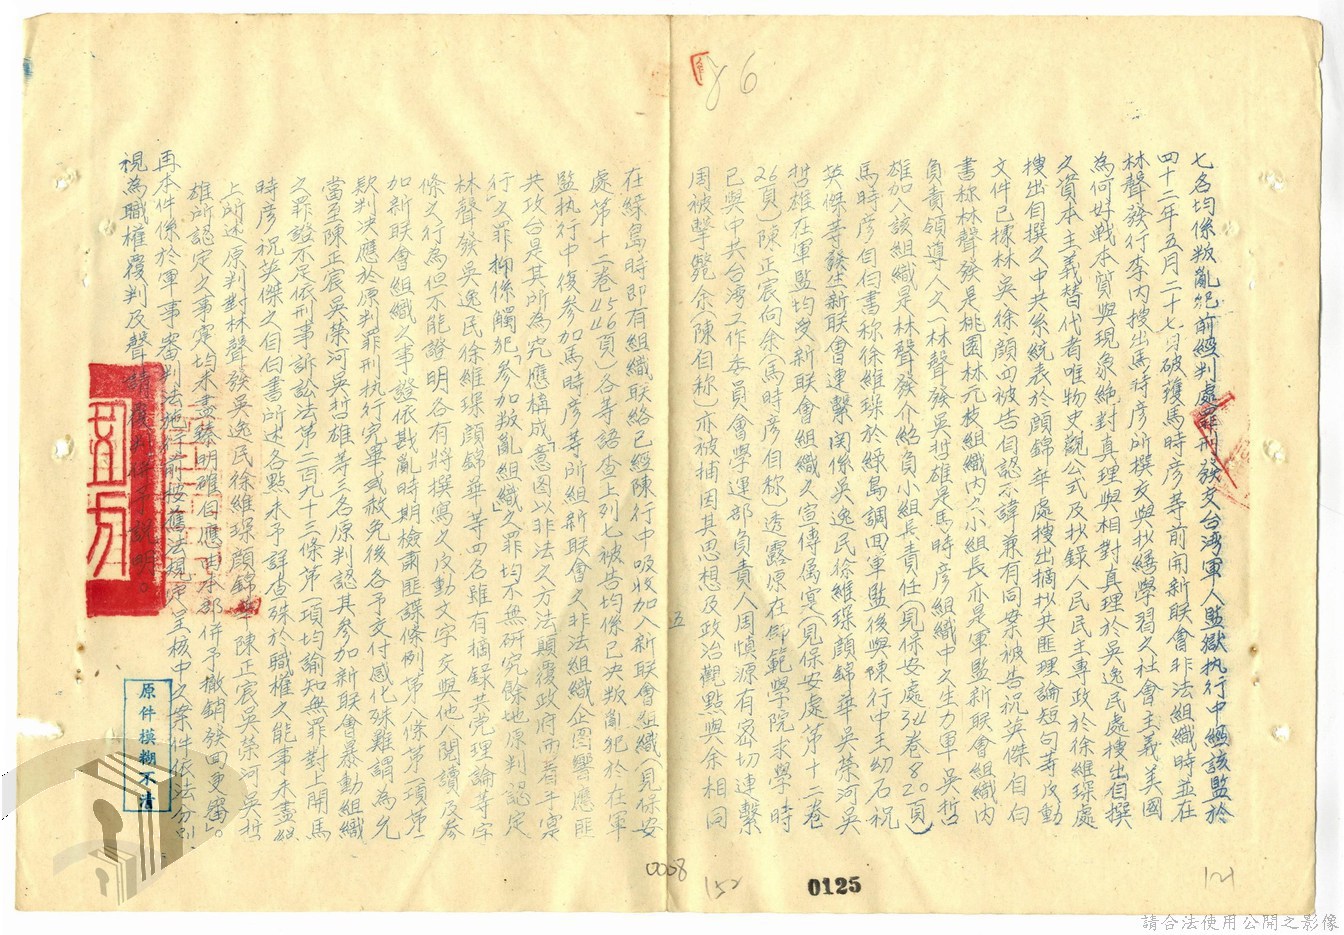 86
七名均係叛亂犯前經判處罪刑發交台湾軍人監獄执行中經該監於
四十二年五月二十七日破獲馬時彥等前開新联會非法組織時並在
林聲發行李內搜出馬時彥所撰文與抄繕學習之社會主義美國
為何好戰本質與現象絕對真理與相對真理於吳逸民處搜出自撰
之資本主義替代者唯物史觀公式及抄錄人民民主專政於徐維琛處
搜出自撰之中共系統表於顏錦华處搜出摘抄共匪理論短句等反動
文件已據林吳徐顏四被告自認不諱兼有同案被告祝英傑自白
書称林聲發是桃園林元枝組織内之小組長亦是軍監新联會組織内
負責領導人之(林聲發吳哲雄是馬時彥組織中之生力軍吳哲
雄加入該組織是林聲發介紹負小組長責任(見保安處34卷820頁)
馬時彥自白書称徐維琛於綠島調回軍監後與陳行中主幼石祝
英傑等發生新联會連繫関係吳逸民徐維琛顏錦华吳荣河吳
哲雄在軍監均受新联會組織之宣傳属实(見保安處第十二卷
26頁)陳正宸向余(馬時彥自称)透露原在師範學院求學時
已與中共台湾工作委員會學運部負責人周慎源有密切連繫
周被擊斃余(陳自称)亦被捕因其思想及政治觀點與余相同
五
在綠島時即有組織联絡已經陳行中吸收加入新联會組織(見保安
處第十二卷4546頁)各等語查上列七被告均係已决叛亂犯於在軍
監执行中復參加馬時彥等所組新联會之非法組織企图響應匪
共攻台是其所為究應構成「意图以非法之方法顛覆政府而着手实
行」之罪抑係觸犯「參加叛亂組織」之罪均不無研究餘地原判認定
林聲發吳逸民徐維琛顏錦华等四名雖有摘録共党理論等字
條之行為但不能證明各有將撰寫之反動文字交與他人閱讀及參
加新联會組織之事證依戡亂時期檢肅匪諜條例第八條第一項第二
款判决應於原判罪刑执行完畢或赦免後各予交付感化殊難謂為允
當至陳正宸吳荣河吳哲雄等三名原判認其參加新联會暴動組織
之罪證不足依刑事訴訟法第二百九十三條第一項均諭知無罪對上開馬
時彥祝英傑之自白書所述各點未予詳查殊於職權之能事未盡綜
上所述原判對林聲發吳逸民徐維琛顏錦华陳正宸吳荣河吳哲
雄所認定之事实均未盡臻明確自應由本部併予撤銷發回更審。
再本件係於軍事審判法施行前按舊法規呈核中之案件依法分別
視為職權覆判及聲請覆判併予說明。
原件模糊不清
0008
152
0125
121
請合法使用公開之影像